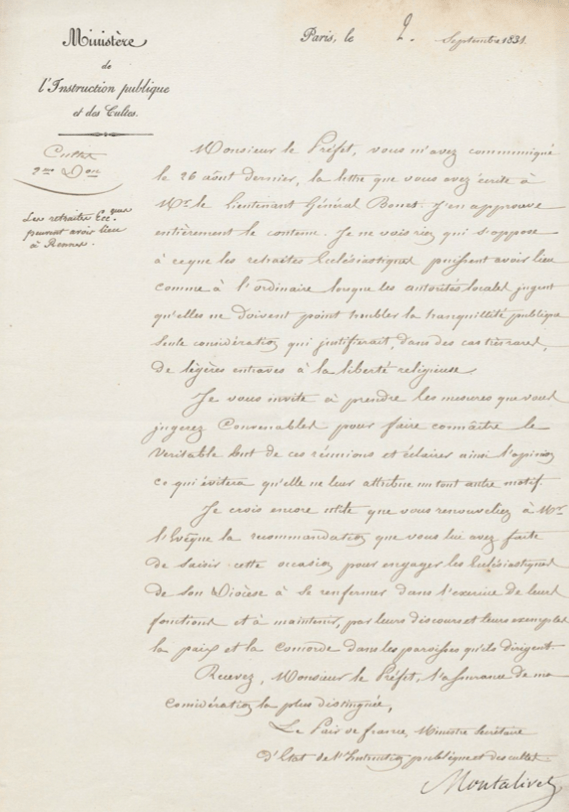 Ministère
de
l'Instruction publique
et des Cultes.
Paris, le 2. Septembre 1831.
Cultes
2me Don
Les retraites Ecc.ques
peuvent avoir lieu
à Rennes.
Monsieur le Préfet, vous m'avez communiqué
le 26 août dernier, la lettre que vous avez écrite à
Mr. le Lieutenant Général Bonet. J'en approuve
entièrement le contenu. Je ne vois rien qui s'oppose
à ce que les retraites Ecclésiastiques puissent avoir lieu
comme à l'ordinaire lorsque les autorités locales jugent
qu'elles ne doivent point troubler la tranquillité publique
seule considération qui justifierait, dans des cas très rares,
de légères entraves à la liberté religieuse.
Je vous invite à prendre les mesures que vous
jugerez Convenables pour faire connaître le
Veritable but de ces réunions et éclairer ainsi l'opinion
ce qui évitera qu'elle ne leur attribue un tout autre motif.
Je crois encore utile que vous renouveliez à Mr.
l'Evêque la recommandation que vous lui avez faite
de saisir cette occasion pour engager les Ecclésiastiques
de son Diocèse à se renfermer dans l'exercice de leurs
fonctions et à maintenir, par leurs discours et leurs exemples
la paix et la concorde dans les paroisses qu'ils dirigent.
Recevez, Monsieur le Préfet, l'assurance de ma
considération la plus distinguée,
Le Pair de france, Ministre Secrétaire
d'Etat de l'Instruction publique et des cultes
Montalivet